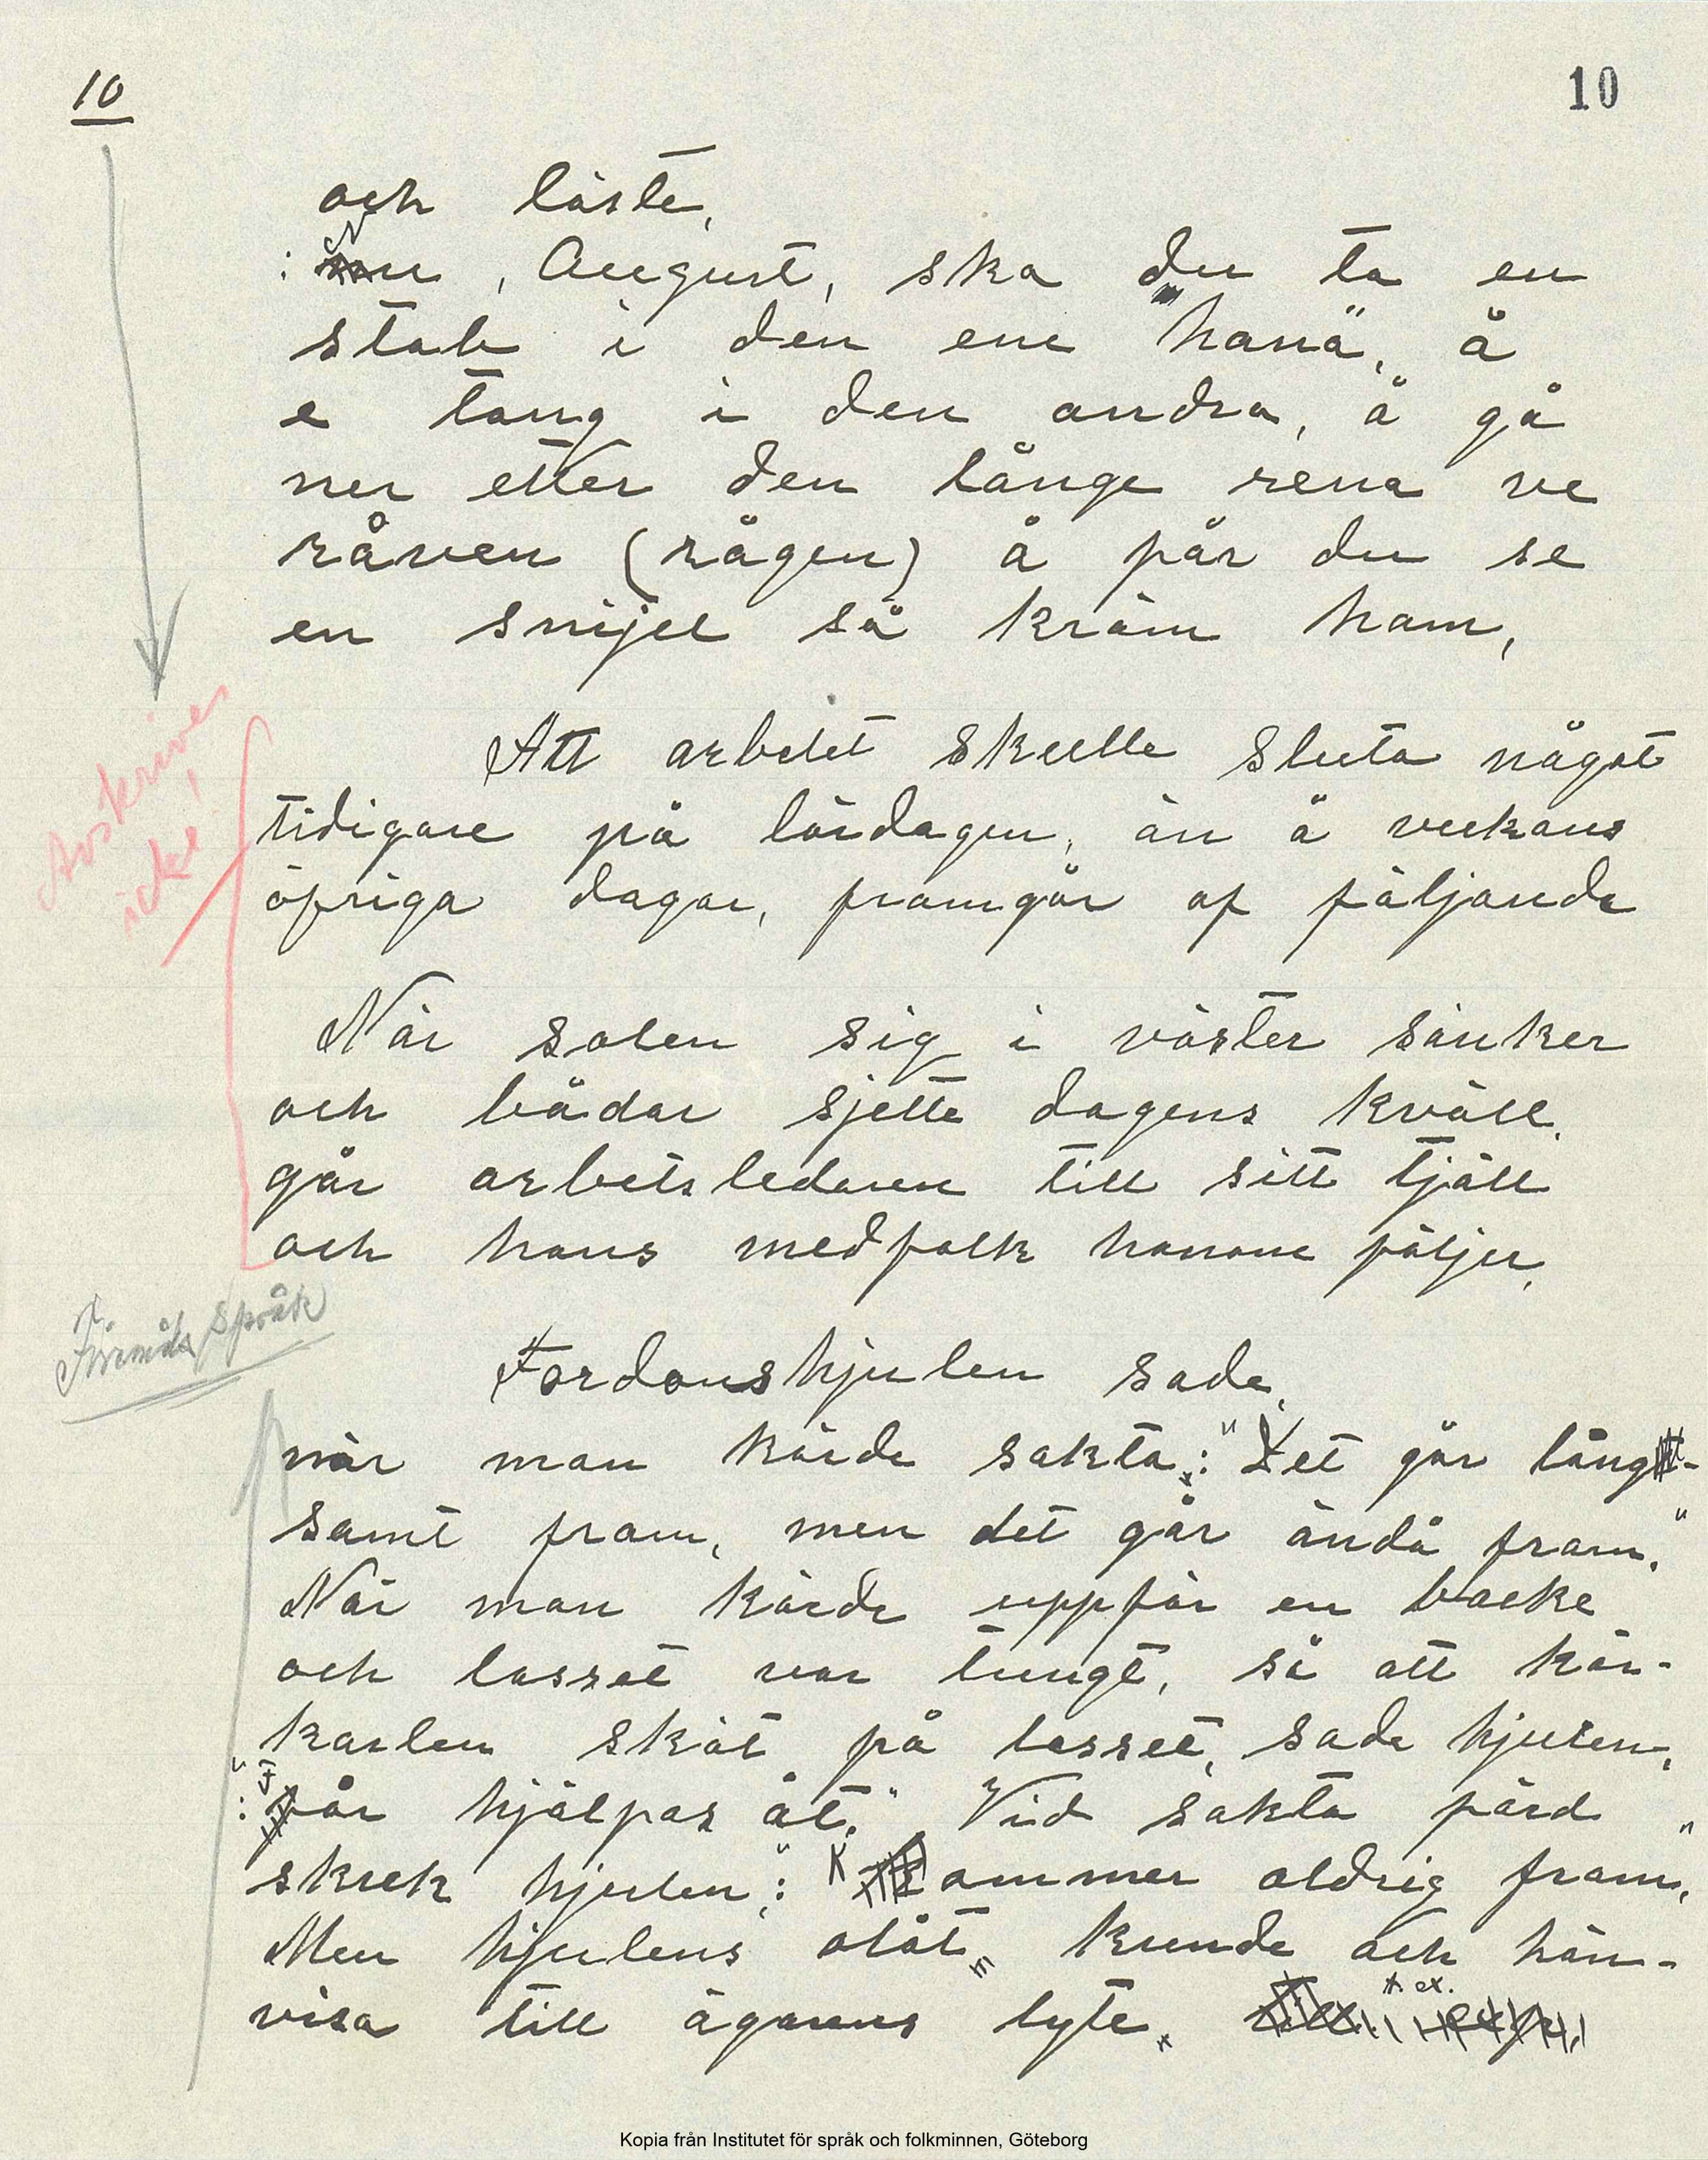 10
10
och läste,
: Nu, August, ska du ta en
stab i den ene "hanä", å
e tang i den andra, å gå
ner etter den långe rena ve
råven (rågen) å får du se
en snijel så kräm ham,
Att arbetet skulle sluta något
tidigare på lördagen, än å veckans
öfriga dagar, framgår af följande
Avskrives
icke!
När solen sig i väster sänker
och bådar sjette dagens kväll,
går arbetsledaren till sitt tjäll
och hans medfolk honom följer,
Föremåls språk
Fordonshjulen sade,
när man körde sakta: "Det går lång-
samt fram, men det går ändå fram."
När man körde uppför en backe
och lasset var tungt, så att kör-
karlen sköt på lasset, sade hjulen,
: "Får hjälpas åt." Vid sakta färd
skrek hjulen: "Kommer aldrig fram,"
Men hjulens olåt kunde och hän-
visa till ägarens lyte. t. ex.
Kopia från Institutet för språk och folkminnen, Göteborg